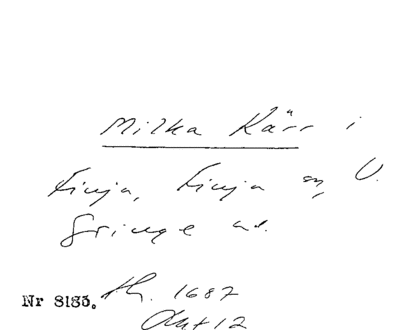 Milka Kärr i
Finja, Finja sn, V.
Göinge hd.
Nr 8135. Hh. 1687
Okt 12